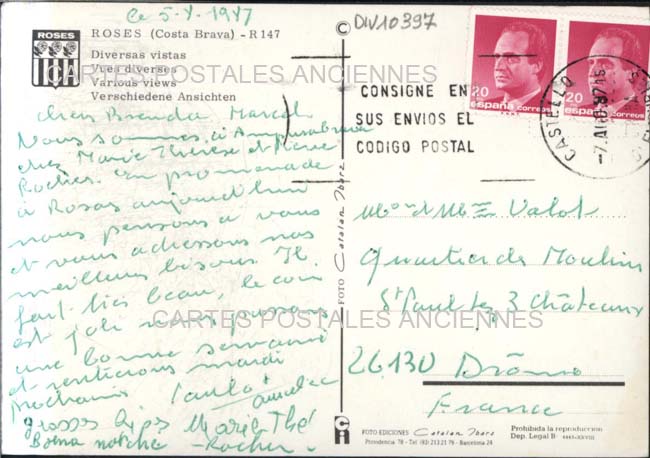 le 5-8-1987
DIV10397
ROSES
ROSES (Costa Brava) - R 147
Diversas vistas
Vues diverses
Various views
Verschiedene Ansichten
CARTES POSTALES ANCIENNES
cher Marcel
Nous sommes à Ampuriabrava
chez Marie Thérèse et Pierre
Rocher en promenade
à Rosas aujourd'hui
nous pensons à vous
et vous adressons nos
meilleurs bisous Il
fait très beau, le coin
est joli nous passons
une bonne semaine
et rentrerons mardi
prochain Paulo
grosses bises Marie Thé
Buena notche Rocher
©
FOTO Catalan Ibarz
CONSIGNE EN
SUS ENVIOS EL
CODIGO POSTAL
20 españa correos
20 españa correos
CASTELLO
Mr et Mme Valot
Quartier des Moulins
St Paul les 3 Châteaux
CARTES POSTALES ANCIENNES
26130 Drôme
France
FOTO EDICIONES Catalan Ibarz
Providencia, 78 - Tel. (93) 213 21 76 - Barcelona 24
Prohibida la reproducción
Dep. Legal B